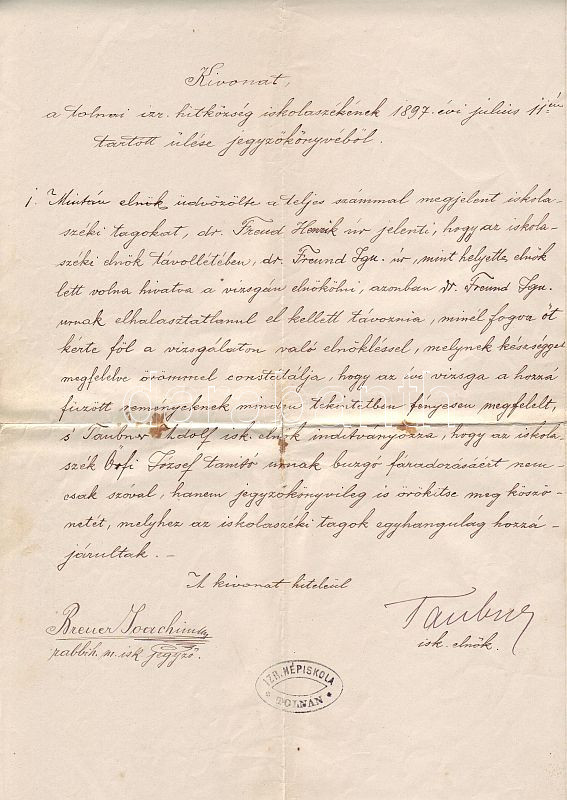 Kivonat,
a tolnai izr. hitközség iskolaszékének 1897. évi július 11én
tartott ülése jegyzőkönyvéből.
1. Miután elnök üdvözölte a teljes számmal megjelent iskola-
széki tagokat, dr. Freud Henrik úr jelenti, hogy az iskola-
széki elnök távollétében, dr. Freund Ign. úr, mint helyettes elnök
lett volna hivatva a vizsgán elnökölni, azonban Dr. Freund Ign.
urnak elhalasztatlanul el kellett távoznia, minél fogva őt
kérte föl a vizsgálaton való elnökléssel, melynek készséggel
megfelelve örömmel constatálja, hogy az évi vizsga a hozzá
fűzött reményeknek minden tekintetben fényesen megfelelt,
s Taubner Adolf isk. elnök indítványozza, hogy az iskola-
szék József tanító urnak buzgó fáradozásáért nem-
csak szóval, hanem jegyzőkönyvileg is örökítse meg köszö-
netét, melyhez az iskolaszéki tagok egyhangulag hozzá-
járultak. —
A kivonat hiteléül
Breuer Joachim
rabbih. m. isk. jegyző.
Taubner
isk. elnök.
IZR. NÉPISKOLA
TOLNÁN